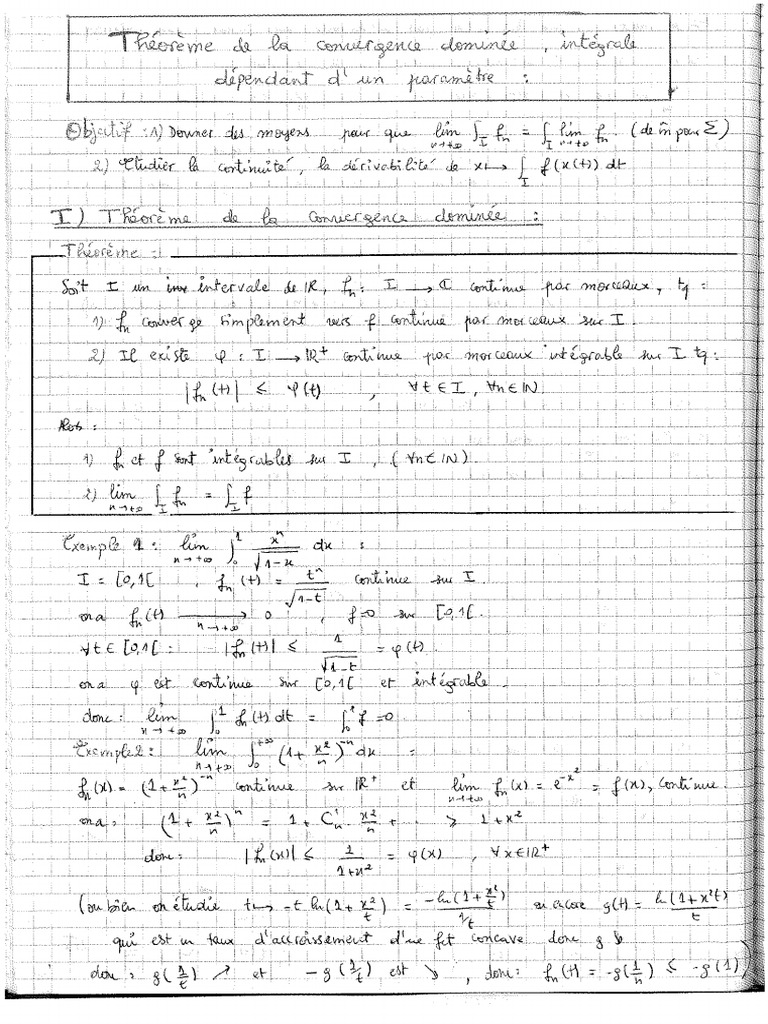 Théorème de la convergence dominée, intégrale
dépendant d'un paramètre :
Objectif : 1) Donner des moyens pour que lim_{n→+∞} ∫_I fn = ∫_I lim_{n→+∞} fn (de m̂ pour Σ)
2) Etudier la continuité, la dérivabilité de x ↦ ∫_I f(x(t)) dt
I) Théorème de la convergence dominée :
Théorème :
Soit I un intervale de IR, fn : I → ℂ continue par morceaux, tq :
1) fn converge simplement vers f continue par morceaux sur I.
2) Il existe φ : I → IR⁺ continue par morceaux intégrable sur I tq :
|fn(t)| ≤ φ(t) , ∀t ∈ I, ∀n ∈ IN
Alors :
1) fn et f sont intégrables sur I , (∀n ∈ IN).
2) lim_{n→+∞} ∫_I fn = ∫_I f
Exemple 1 : lim_{n→+∞} ∫_0^1 x^n/√(1-x) dx :
I = [0,1[ , fn(t) = t^n/√(1-t) continue sur I.
on a fn(t) →_{n→+∞} 0 , f=0 sur [0,1[.
∀t ∈ [0,1[ : |fn(t)| ≤ 1/√(1-t) = φ(t).
on a φ est continue sur [0,1[ et intégrable.
donc : lim_{n→+∞} ∫_0^1 fn(t) dt = ∫_0^1 f = 0
Exemple 2 : lim_{n→+∞} ∫_0^{+∞} (1 + x²/n)^{-n} dx :
fn(x) = (1 + x²/n)^{-n} continue sur IR⁺ et lim_{n→+∞} fn(x) = e^{-x²} = f(x), continue.
on a : (1 + x²/n)^n = 1 + C_n^1 · x²/n + .. ≥ 1 + x²
donc : |fn(x)| ≤ 1/(1+x²) = φ(x) , ∀x ∈ IR⁺
(ou bien on étudie t ↦ -t ln(1 + x²/t) = -ln(1 + x²/t)/(1/t) ou encore g(t) = ln(1+x²t)/t
qui est un taux d'accroissement d'une fct concave donc g ↘
donc : g(1/t) ↗ et -g(1/t) est ↘ , donc : fn(t) = -g(1/n) ≤ -g(1))